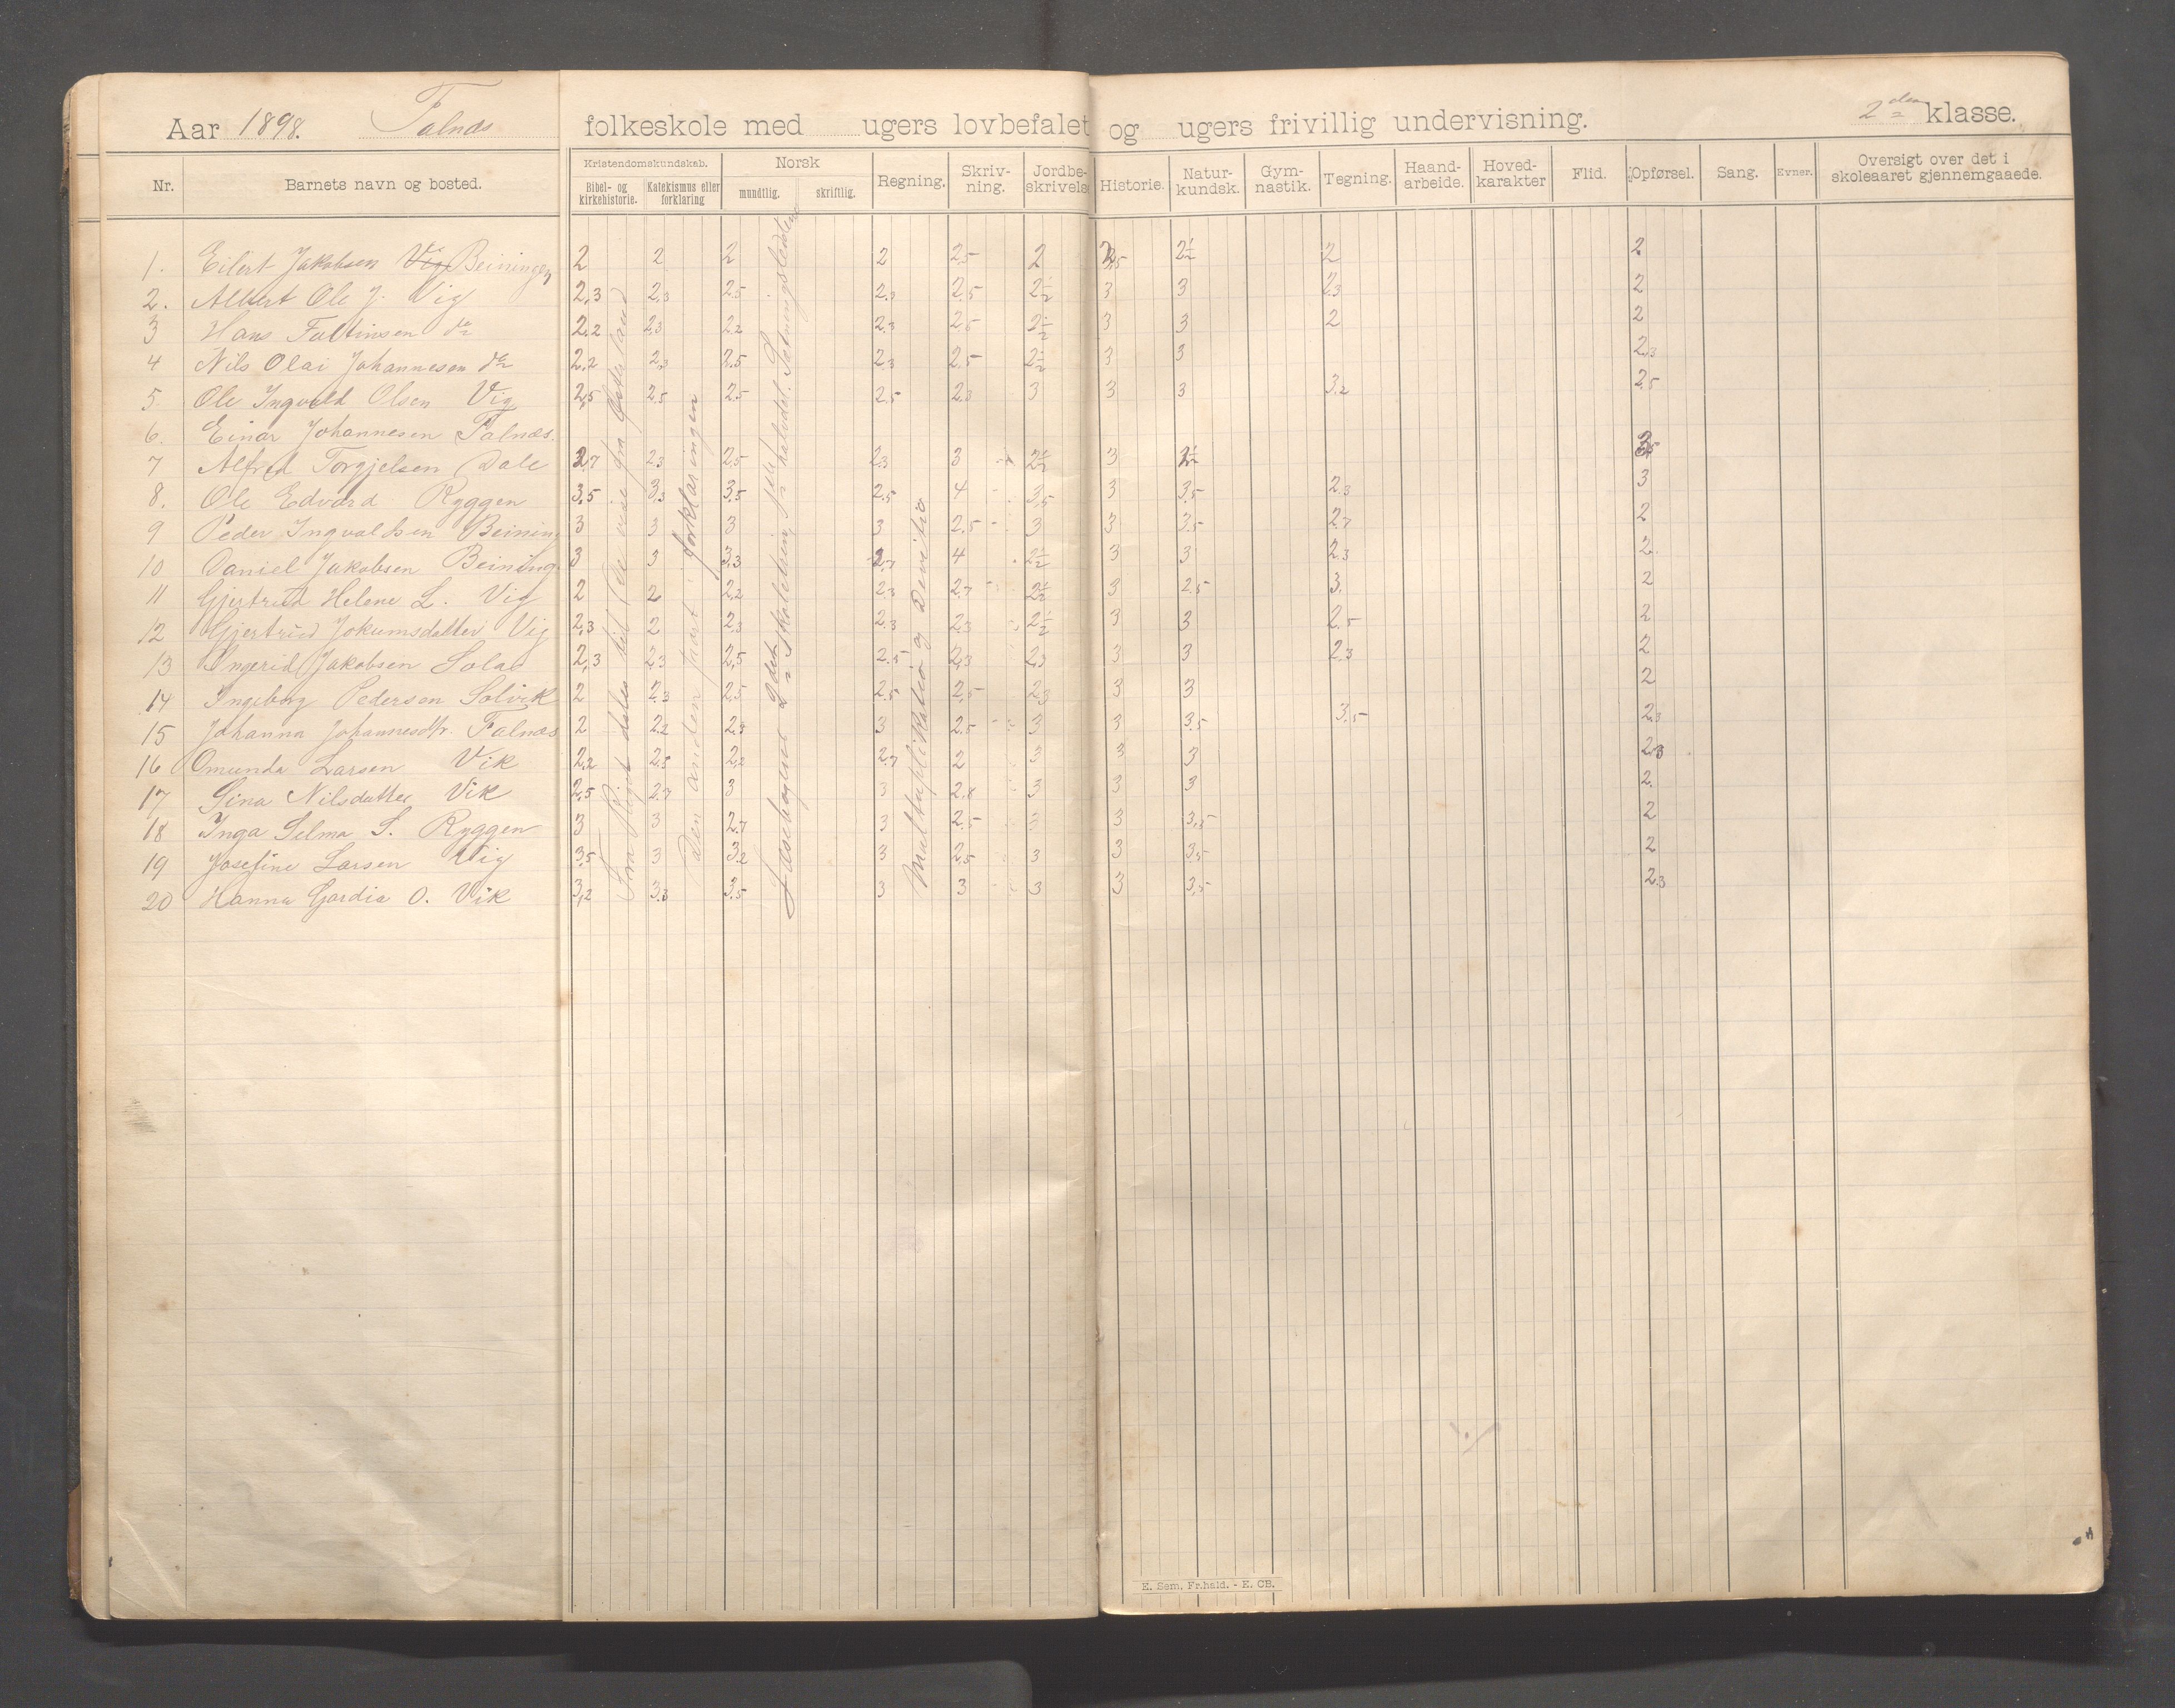 Aar 1898. Falnæs folkeskole med ugers lovbefalet og ugers frivillig undervisning. 2den klasse.
Nr. Barnets navn og bosted. Kristendomskundskab. Bibel- og kirkehistorie. Katekismus eller forklaring Norsk mundtlig. skriftlig. Regning. Skriv-ning. Jordbe-skrivelse Historie. Natur-kundsk. Gym-nastik. Tegning. Haand-arbeide. Hoved-karakter Flid. Opførsel. Sang. Evner. Oversigt over det i skoleaaret gjennemgaaede.
1. Eilert Jakobsen Vig Beiningen 2 2 2 2 2.5 2 2.5 2½ 2 2
2. Albert Ole J. Vig 2,3 2,3 2.5 2.3 2.5 2½ 3 3 2.3 2
3 Hans Faltinsen do 2.2 2,3 2.2 2.3 2.5 2½ 3 3 2 2
4 Nils Olai Johannesen do 2,2 2,3 2.5 2.3 2.5 2½ 3 3 2.3
5. Ole Ingvald Olsen Vig 2,5 2.5 2.5 2.5 2.3 3 3 3 3.2 2.5
6. Einar Johannesen Falnæs.
7 Alfred Torgjelsen Dale 2,7 2.3 2.5 2.3 3 2½ 3 2½
8. Ole Edvard Ryggen 3.5 3,3 3,5 2.5 4 3,5 3 3.5 2.3 3
9 Peder Ingvaldsen Beining 3 3 3 3 2.5 3 3 3.5 2.7 2
10 Daniel Jakobsen Beining 3 3 3,3 2,7 4 2½ 3 3 2.3 2.
11 Gjertrud Helene L. Vig 2 2 2,2 2.3 2.7 2½ 3 2.5 3. 2
12 Gjertrud Jokumsdatter Vig 2,3 2 2,3 2.3 2,3 2½ 3 3 2.5 2
13 Ingerid Jakobsen Sola 2,3 2,3 2,5 2.5 2,3 2,3 3 3 2.3 2
14 Ingeborg Pedersen Solvik 2 2.3 2.5 2.5 2,5 2,3 3 3 2
15 Johanna Johannesdtr. Falnæs 2 2.2 2.5 3 2.5 3 3 3.5 3.5 2.3
16 Omunda Larsen Vik 2,2 2.5 2,2 2.7 2 3 3 3 2,3
17 Sina Nilsdatter Vik 2,5 2.7 3 3 2.8 3 3 3 2.
18 Inga Selma S. Ryggen 3 3 2.7 3 2.5 3 3 3,5 2
19 Josefine Larsen Vig 3,5 3 3,2 3 2,5 3 3 3,5 2
20 Hanna Gardia O. Vik 3,2 3.3 3.5 3 3 3 3 3,5 2.3
Fra Riget deles til
Den anden part i forklaringen
Læsebogens 2det skoletrin,
Multiplikatio og Divisio
E. Sem, Fr.hald. - E. CB.